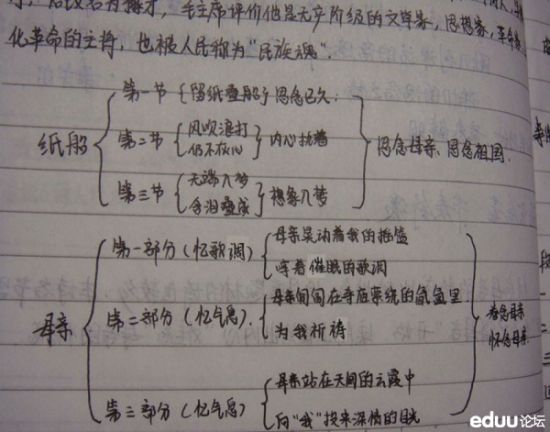 后改名为豫才，毛主席评价他是无产阶级的文学家、思想家、革命家，
化革命的主将，也被人民称为“民族魂”.
纸船
第一节
留纸叠船
思念已久.
第二节
风吹浪打
仍不灰心
内心执着
第三节
无端入梦
含泪叠成
想象入梦
思念母亲、思念祖国.
母亲
第一部分（忆歌调）
母亲晃动着我的摇篮
哼着催眠的歌调
第二部分（忆气息）.
母亲 在寺庙 的氤氲里
为我祈祷
第三部分（忆气息）
母亲站在天 的云霞中
向“我”投来深情的目光
母亲
怀念母亲
eduu论坛